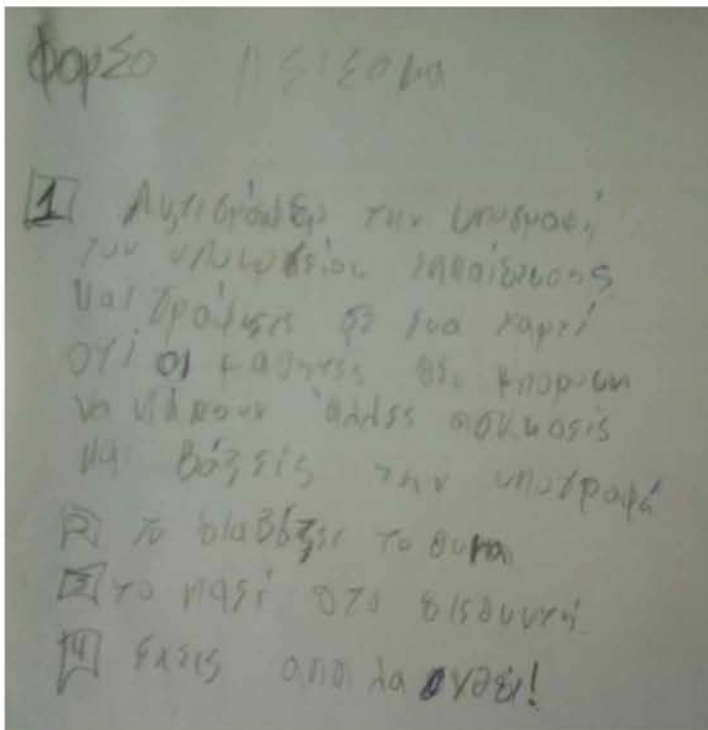 Φορσο Λσισομα
1 Αντιγράφεις την υπογραφή
του υπουργείου εκπαίδευσης
και γράφεις σε ενα χαρτί
οτί οι μαθητες δεν μπορουν
να κάνουν άλλες ασκησεις
και βάζεις την υπογραφή
2 το διαβάζει το θυμα
3 το πασι στο διεθυντή
4 εχεις απαλαχθεί!